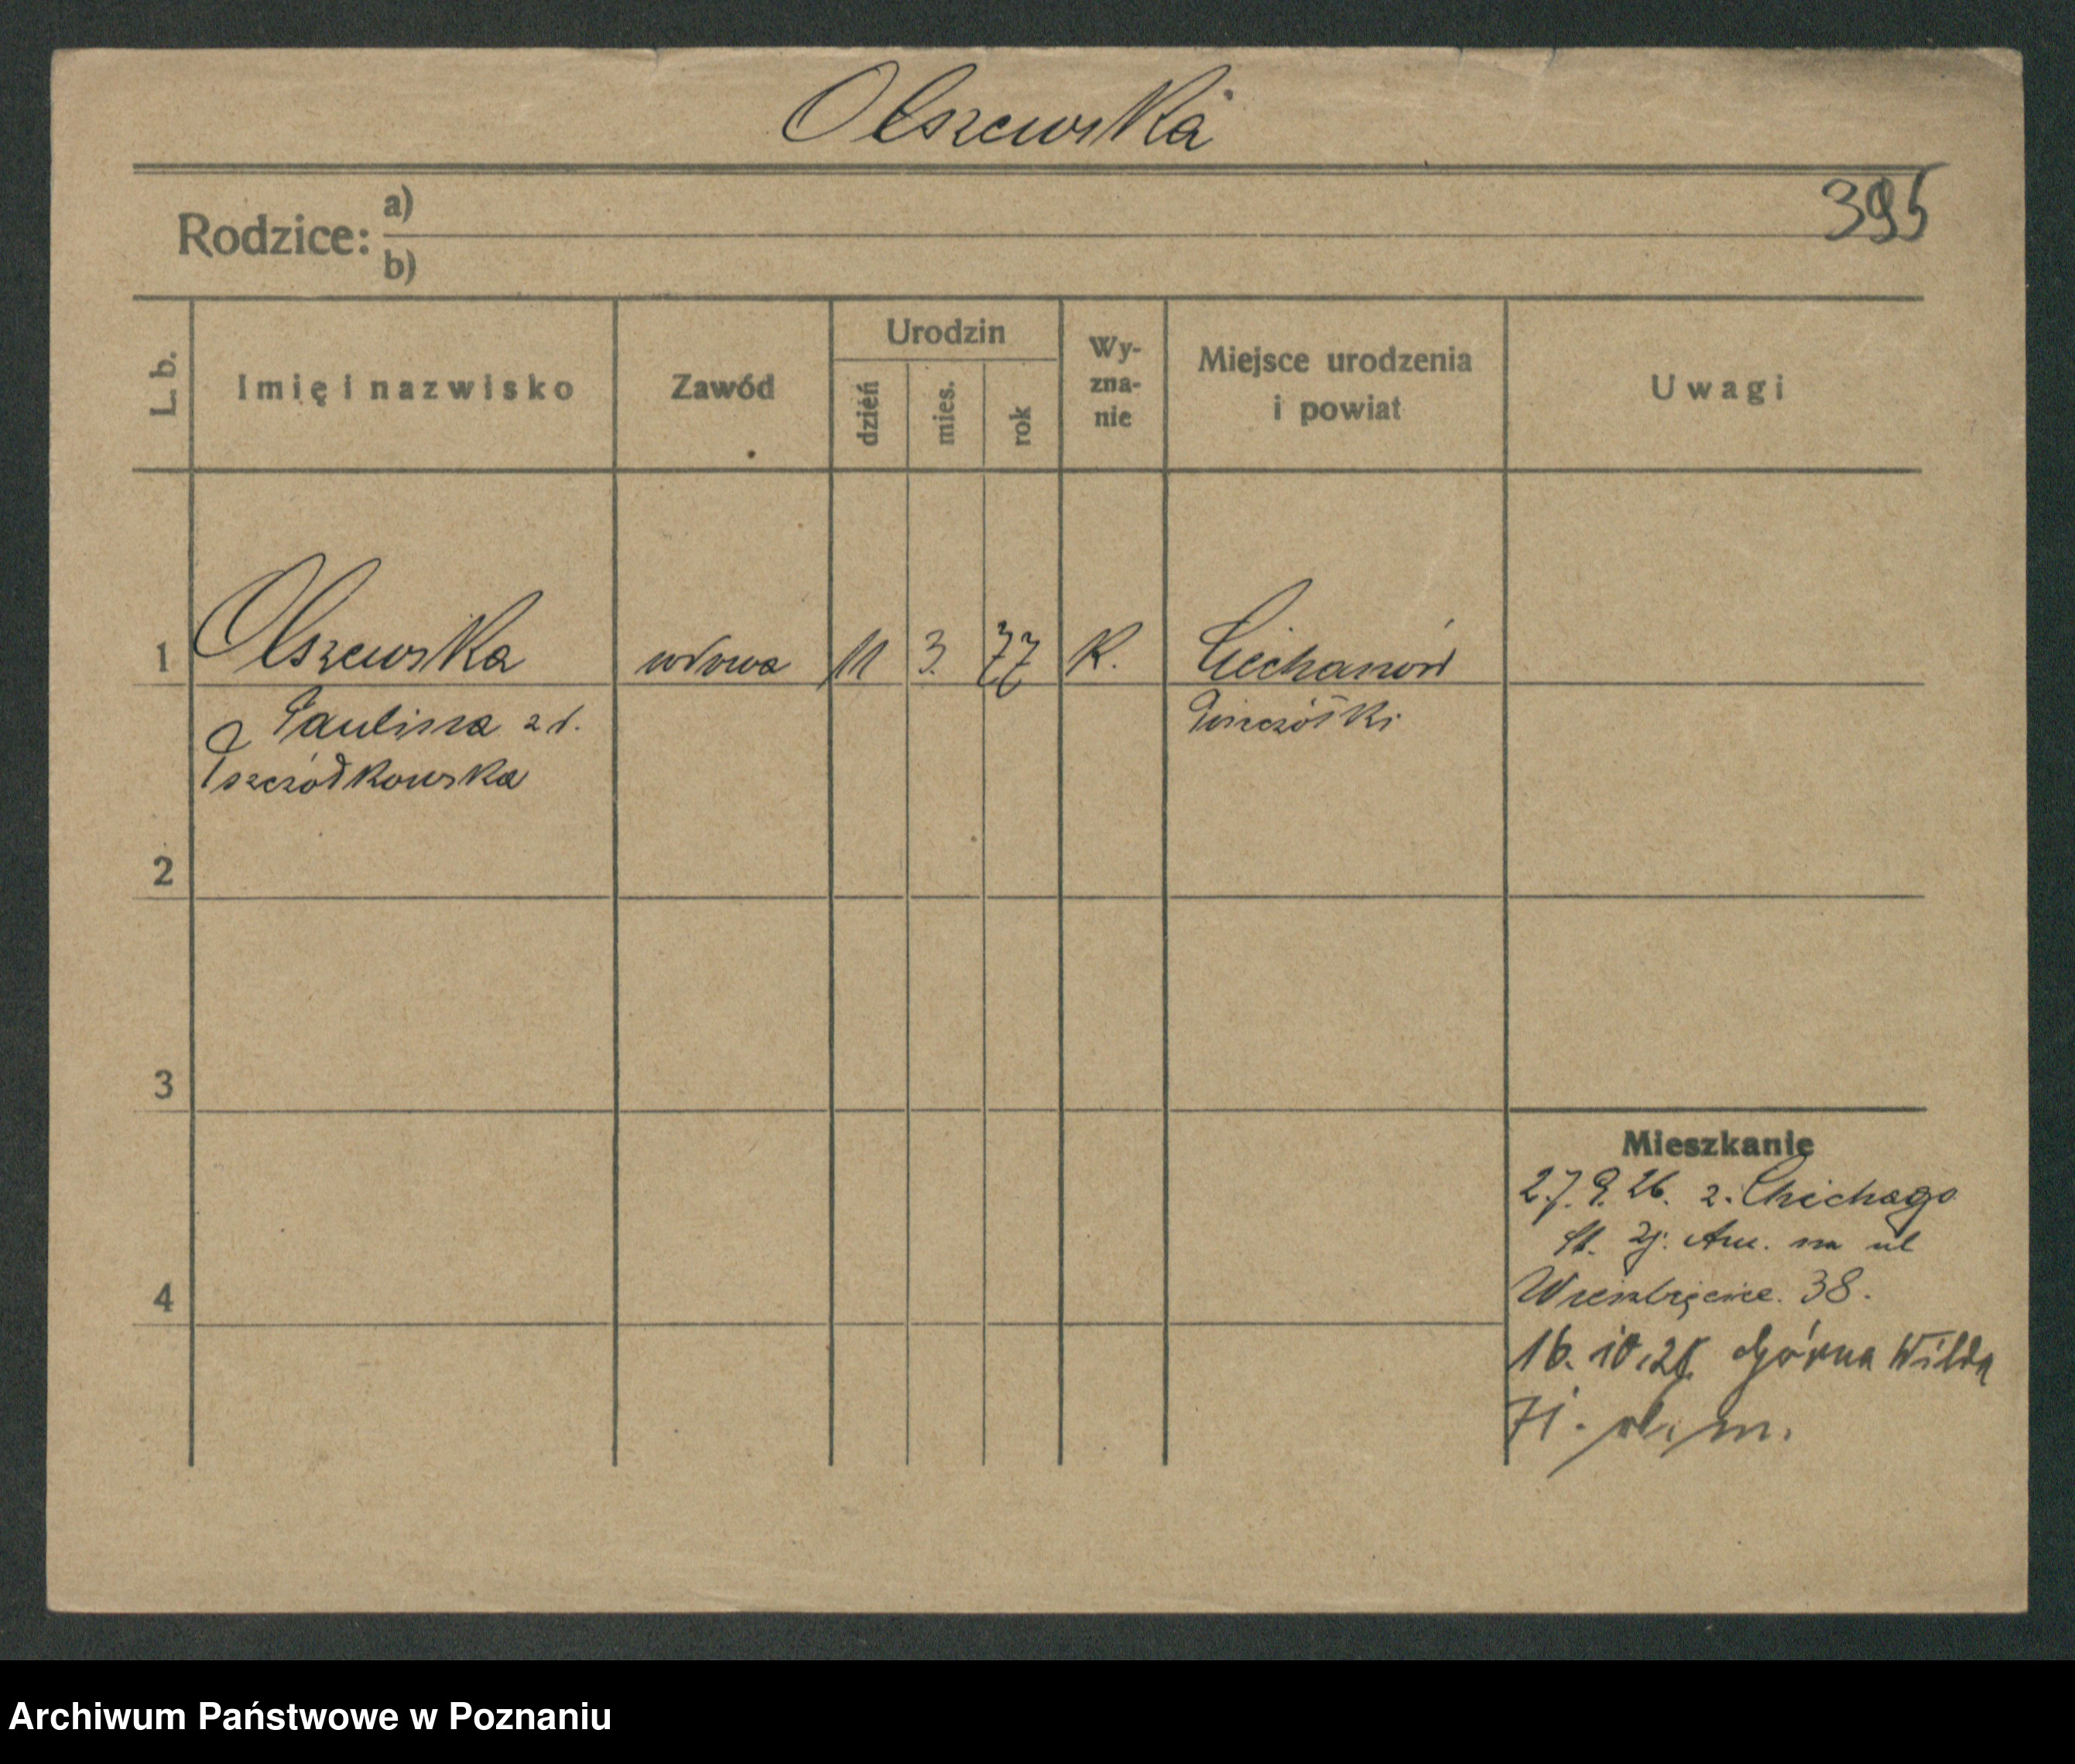 Olszewska
395
Rodzice: a)
b)
L. b.
Imię i nazwisko
Zawód
Urodzin
dzień
mies.
rok
Wy-
zna-
nie
Miejsce urodzenia
i powiat
Uwagi
1 Olszewska wdowa 11 3. 77 K. Ciechanów
Paulina z d.
2
3
4
Mieszkanie
27. 9. 26. z. Chichago
St. Zj. Am. na ul
38.
16. 10. 26 Górna Wilda
71.
Archiwum Państwowe w Poznaniu